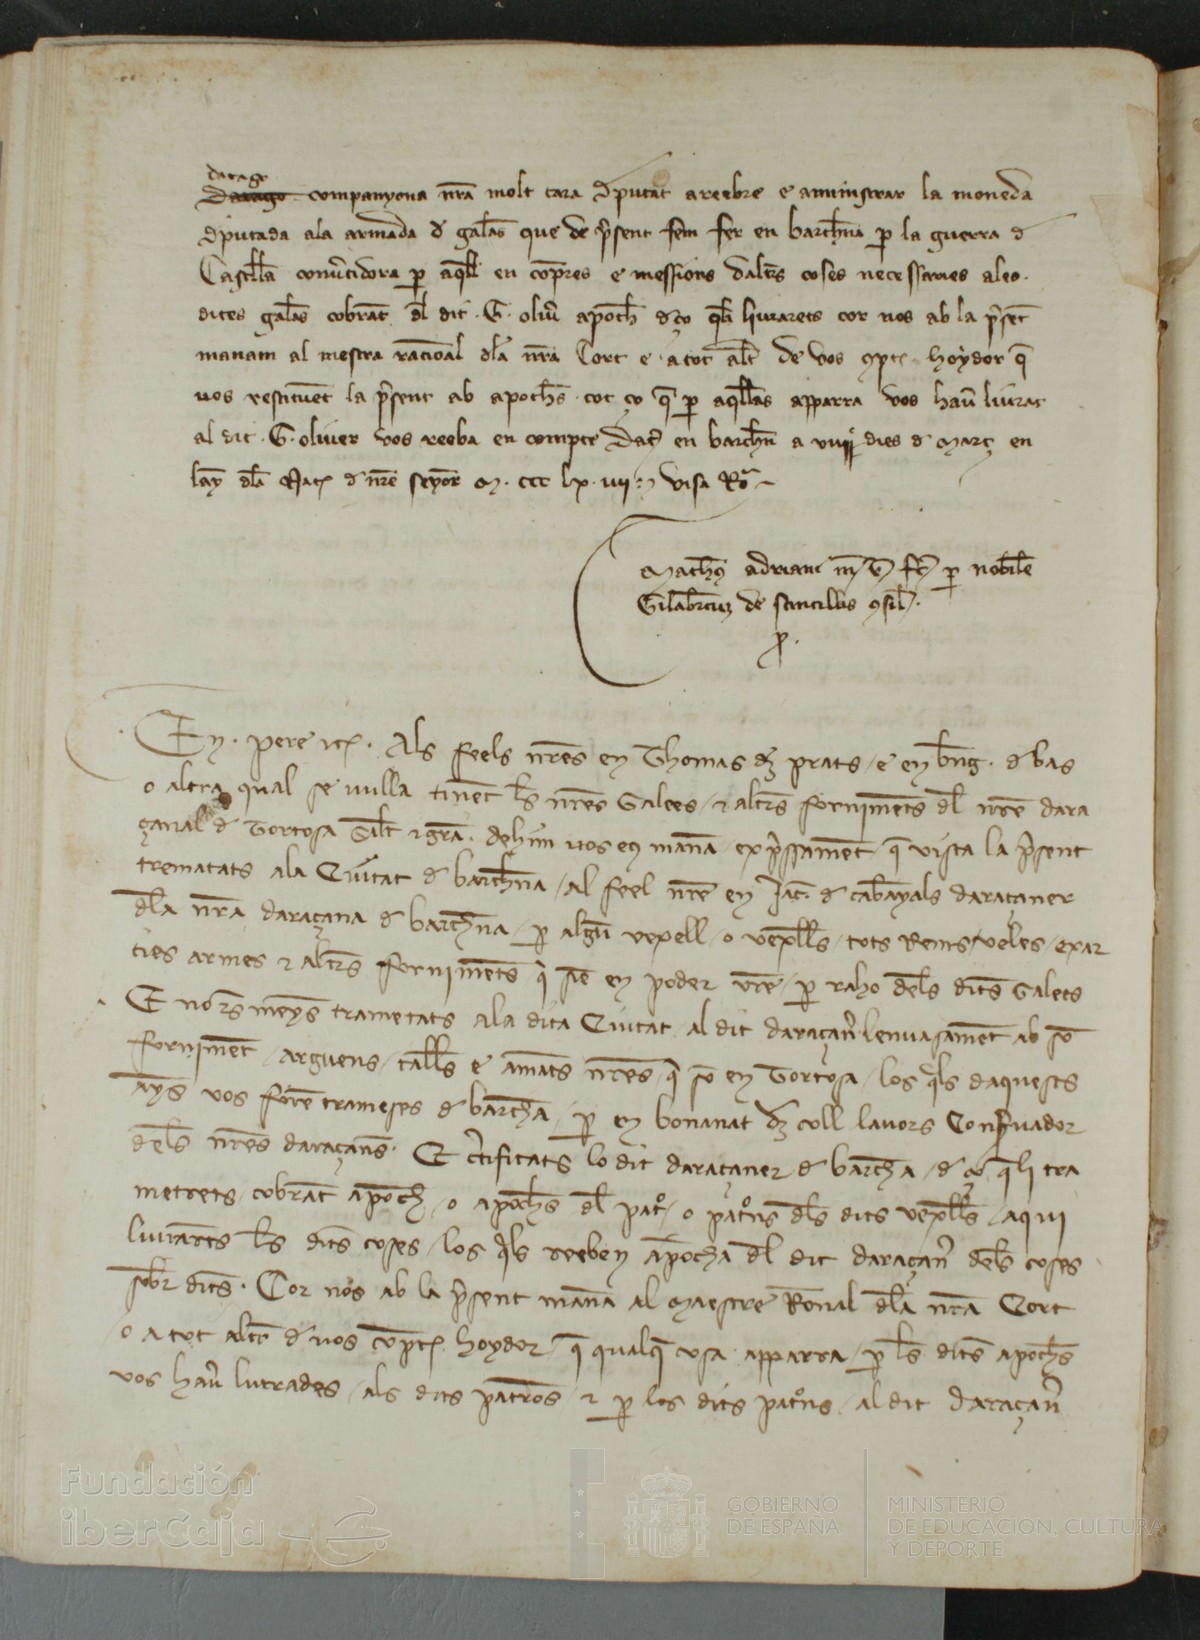 darago
darago companyona nr̃a molt cara dputat a reebre e aministrar la moneda
dputada ala armada d galeas que de p̃sent fem fer en barchna p la guerra d
Castella convertidora p aqll en comp̃res e messions daltr̃s coses necessaries ales
dites galeas cobrãt dl dit . G . oliu̾ apoch d ço q̃li liurarets cor nos ab la p̃set
manam al mestra racional dla nr̃a Cort e a tot alt̃ de vos 9pte hoydor q̃
vos restituẽt la p̃sent ab apochs tot ço q̃ p aqlles apparra vos hau̾ liurat
al dit . G . oliuer vos reeba en compte Dat̃ en barchn a viiij dies d Març en
lay dla Nat̃ d nr̃e seyor M . ccc lx . iiij : visa Ro
Mathe9 adriani p nobile
Gilabertum de scintillis 9sil .
p .
En . pere etc̃ . Als feels nr̃es en Thomas dz prats / e en bñg . d bas
o altra qual se vulla tinẽt ls nr̃es Galees / & altr̃s fornimẽts dl nr̃e dara
çanal d Tortosa Salt & gr̃a . dehim vos e9 manã exp̃ssamẽt q̃ vista la p̃sent
trematats ala Ciutat d barchna / al feel nr̃e en Jac̃ . d cabanyals daraçaner
dla nr̃a daraçana d barchna / p algũ vexell / o vexlls / tots Rems / veles / exar
cies armes & altr̃s fornimẽts q̃ sie en poder vr̃e / p raho dels dits Galees
E no r̃s meyns trametats ala dita Ciutat al dit daraçan̾ lenuasamẽt ab so
fornimẽt / arguens / talls e amats nr̃es / q̃ so en Tortosa / los q̃ls daquests
ays vos forẽ trameses d barchña / p en bonanat dz coll lauors Cons̾uador
dels nr̃es daraçans . E c̾tificats lo dit daraçaner d barchña / d ço q̃ li tra
metrets / cobrãt apoch / o apochs dl pat̾o / o pat̾ons dls dits vexlls / a qui
liurarets ls dits coses / los q̃ls reeben apocha dl dit daraçan̾ dels coses
sobr̃ dits . Cor nos ab la p̃sent manã al Maestre Ronal dla nr̃a Cort
o a tot altr̃ d vos cõpt̃ hoydor / q̃ qualq̃ cosa apparra / p ls dits apochs
vos hau̾ liurades / als dits patrons & p los dits pat̾ons / al dit daraçan̾
Fundación
iberCaja
GOBIERNO
DE ESPAÑA
MINISTERIO
DE EDUCACIÓN, CULTURA
Y DEPORTE